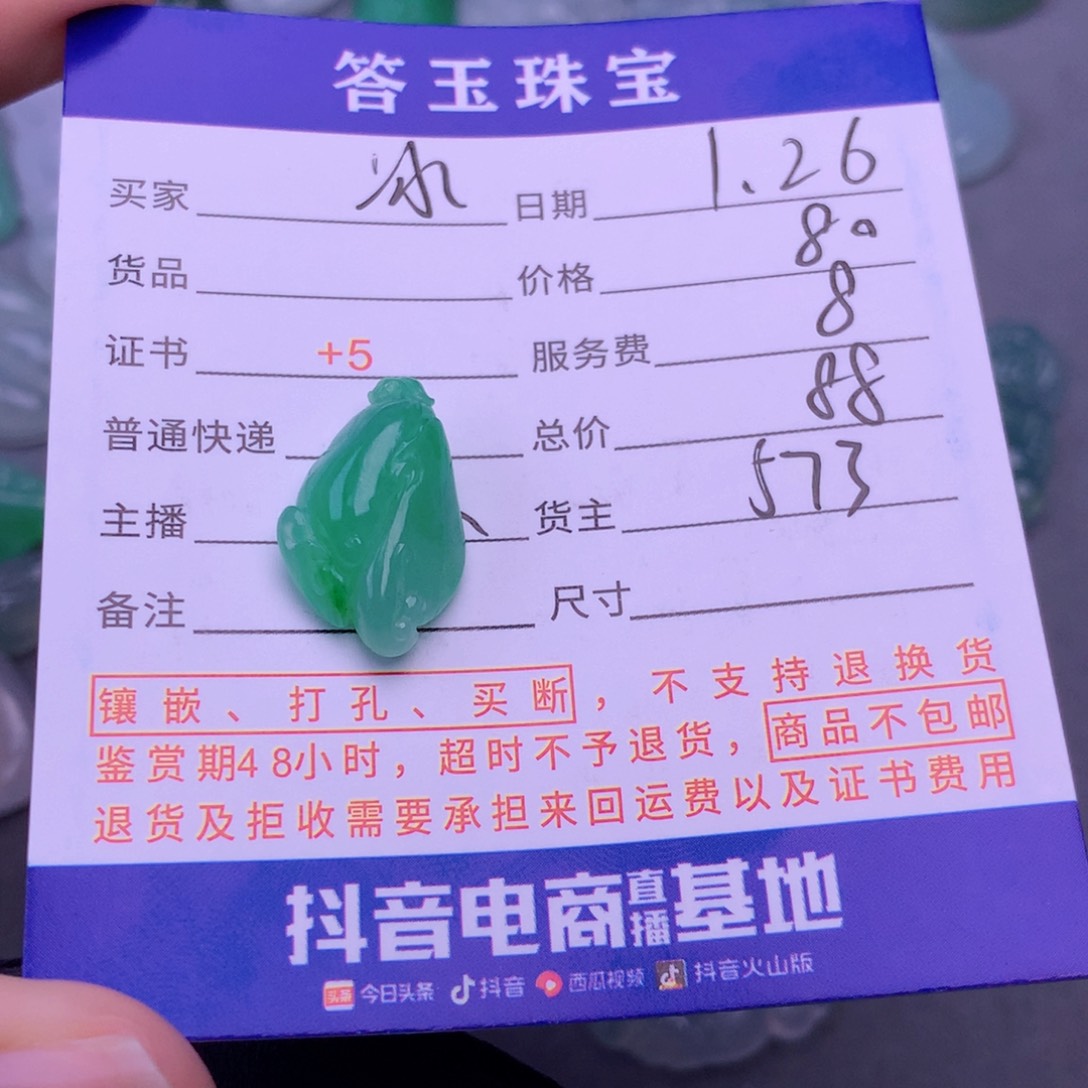 答玉珠宝
买家 冰 日期 1.26
货品 价格 80
证书 +5 服务费 8
普通快递 总价 88
主播 货主 573
备注 尺寸
镶嵌、打孔、买断，不支持退换货
鉴赏期48小时，超时不予退货，商品不包邮
退货及拒收需要承担来回运费以及证书费用
抖音电商直播基地
头条 今日头条 抖音 西瓜视频 抖音火山版